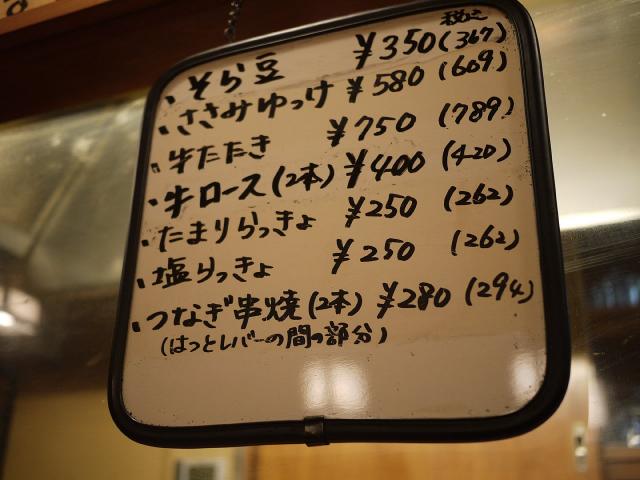 税込
・そら豆 ¥350(367)
・ささみゆっけ ¥580(609)
・牛たたき ¥750(789)
・牛ロース(2本) ¥400(420)
・たまりらっきょ ¥250(262)
・塩らっきょ ¥250(262)
・つなぎ串焼(2本) ¥280(294)
(はつとレバーの間の部分)